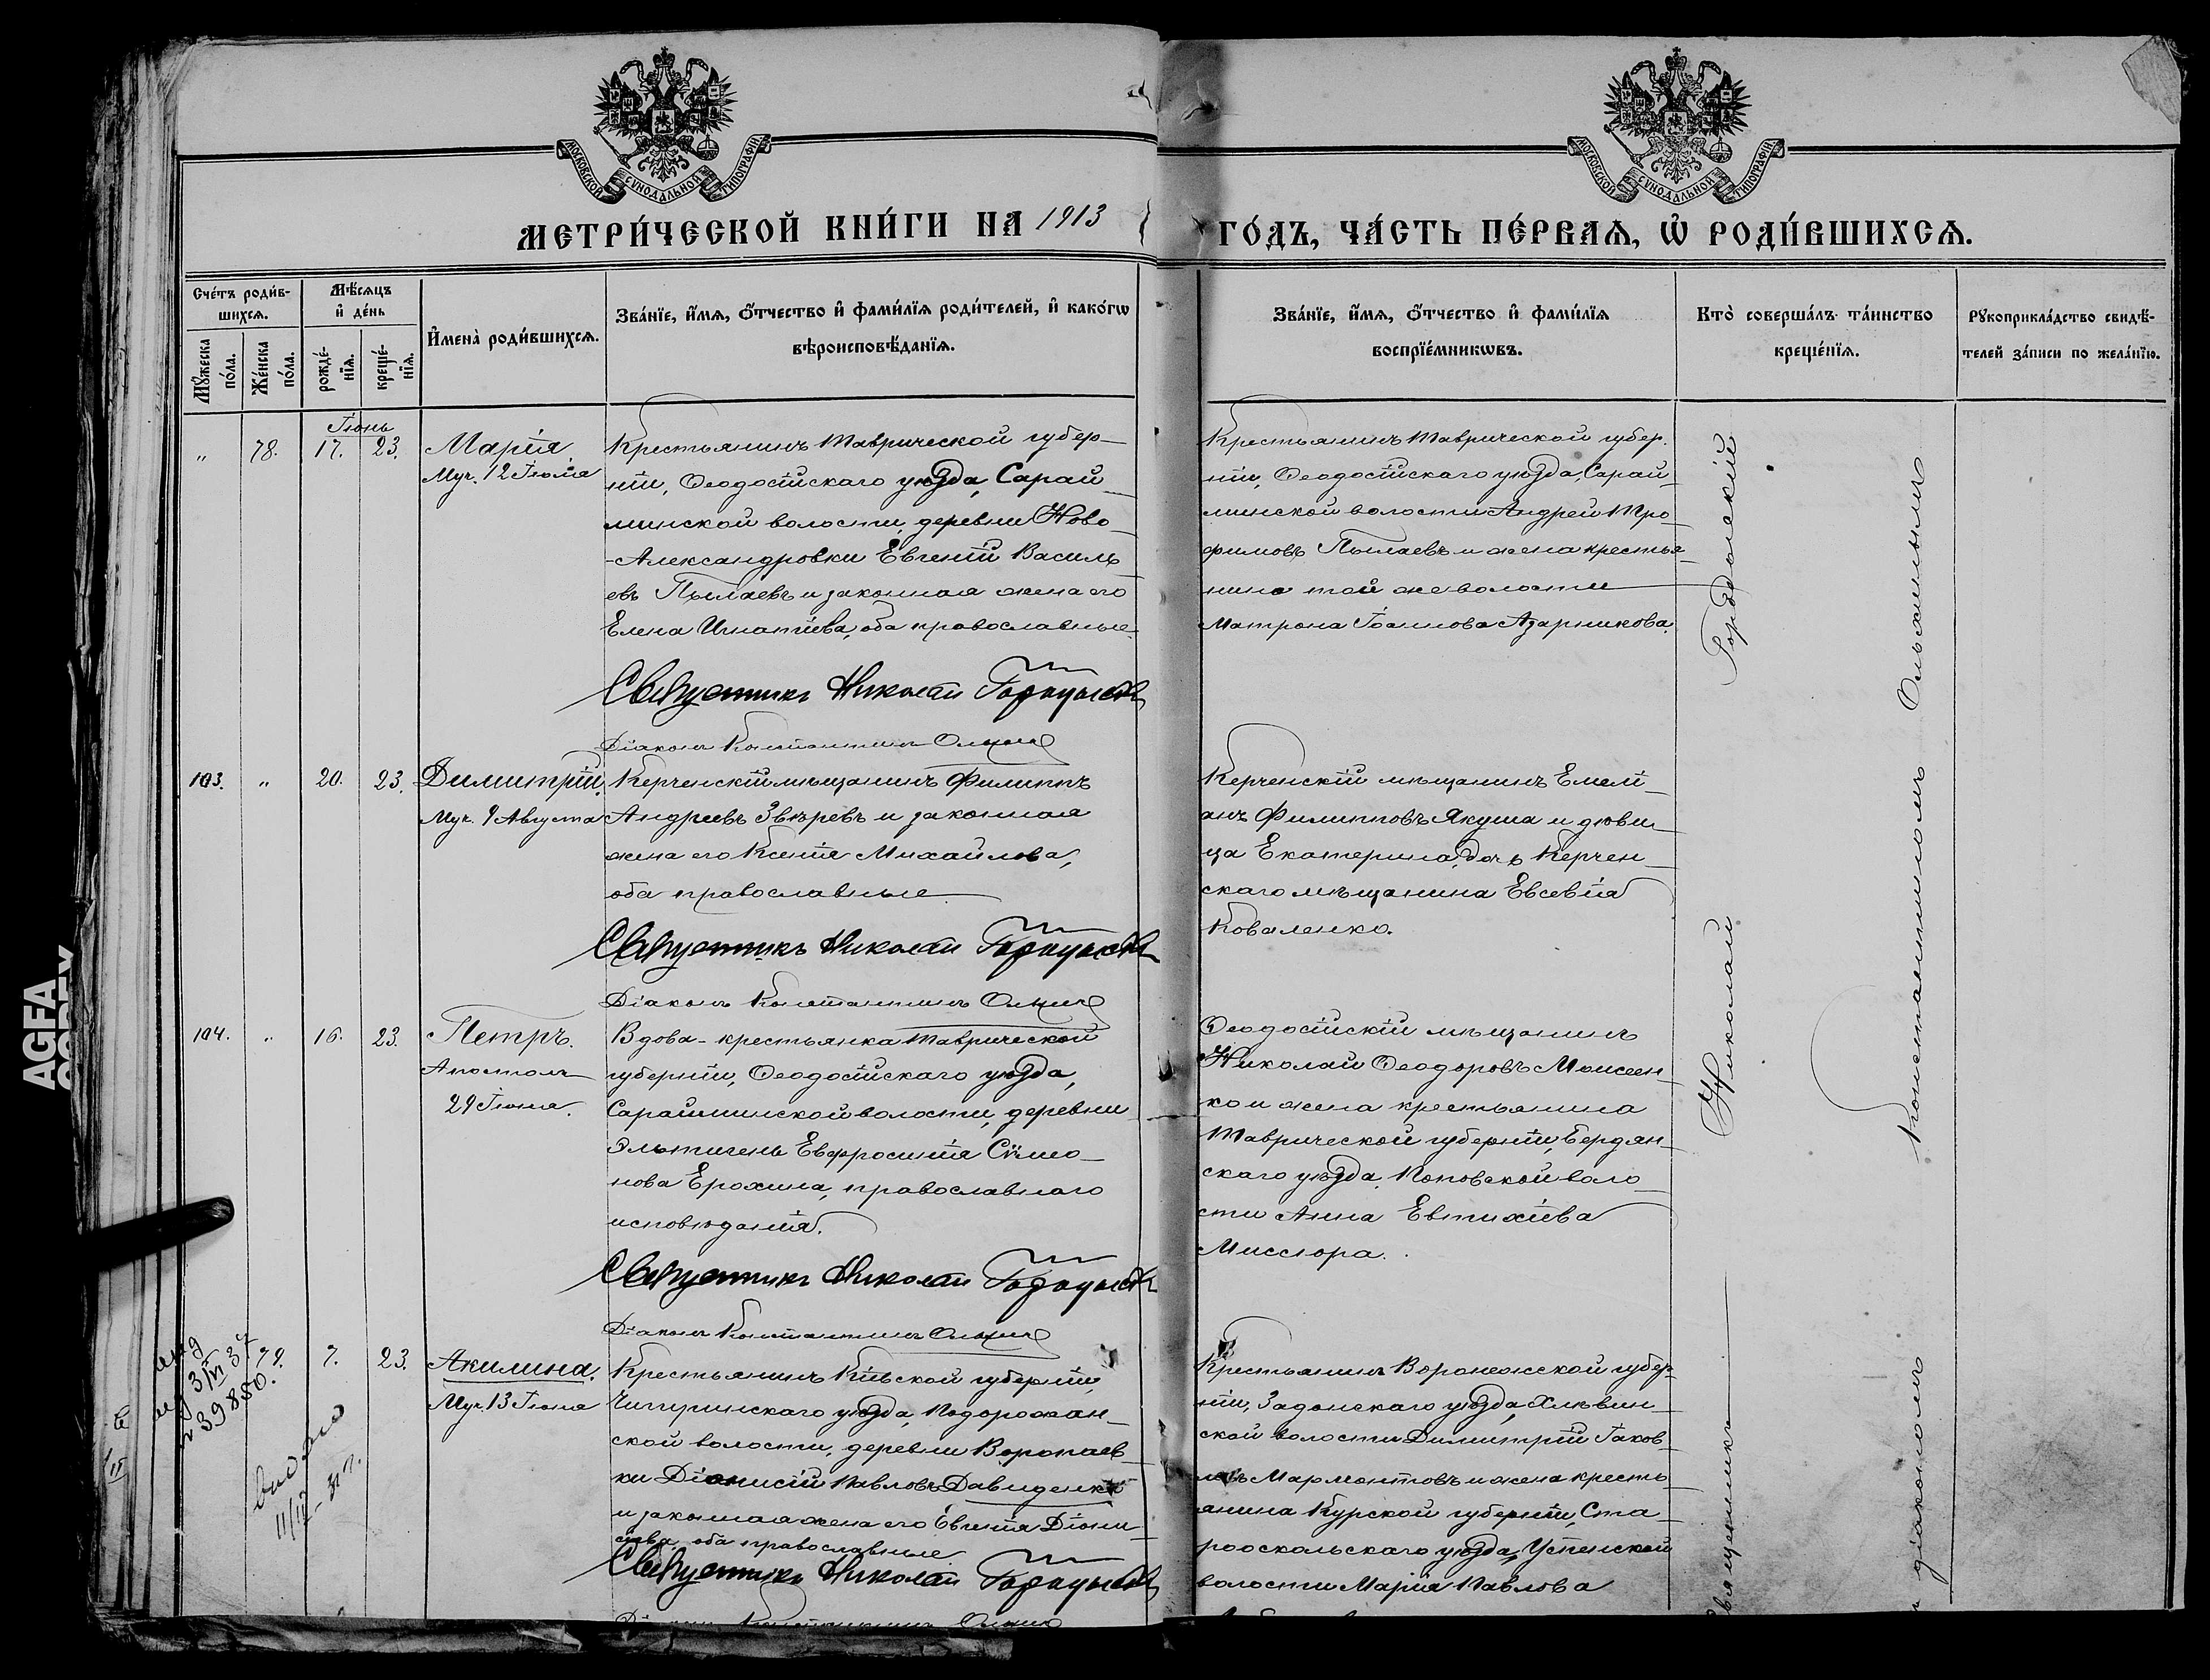 МОСКОВСКОЙ СѴНОДАЛЬНОЙ ТИПОГРАФІИ
МОСКОВСКОЙ СѴНОДАЛЬНОЙ ТИПОГРАФІИ
МЕТРИ́ЧЕСКОЙ КНИ́ГИ НА 1913
ГО́ДЪ, ЧА́СТЬ ПЕ́РВАѦ, Ѡ҆ РОДИ́ВШИХСѦ.
Сче́тъ роди́в-
шихсѧ.
Мꙋ́жеска по́ла.
Же́нска по́ла.
Мѣ́сѧцъ
и҆ де́нь
рожде́-
нїѧ.
креще́-
нїѧ.
И҆мена̀ роди́вшихсѧ.
Зва́нїе, и҆́мѧ, ѻ҆́тчество и҆ фами́лїѧ роди́телей, и҆ како́гѡ
вѣроисповѣ́данїѧ.
Зва́нїе, и҆́мѧ, ѻ҆́тчество и҆ фами́лїѧ
воспрїе́мникѡвъ.
Кто̀ соверша́лъ та́инство
креще́нїѧ.
Рꙋкоприкла́дство свидѣ́-
телей за́писи по жела́нїю.
Іюнь
" 78. 17. 23. Марія
Муч. 12 Іюля
Крестьянинъ Таврической губер-
ніи, Ѳеодосійскаго уѣзда, Сарай-
минской волости, деревни Ново-
-Александровки Евгеній Василь-
евъ Пылаевъ и законная жена его
Елена Игнатіева, оба православные.
Священникъ Николай Городскій
Діаконъ Константинъ
Крестьянинъ Таврической губер-
ніи, Ѳеодосійскаго уѣзда, Сарай-
минской волости Андрей Тро-
фимовъ Пылаевъ и жена крестья-
нина той же волости
Матрона Іоаннова Азарникова.
103. " 20. 23. Димитрій.
Муч. 9 Августа
Керченскій мѣщанинъ Филиппъ
Андреевъ Звѣревъ и законная
жена его Ксенія Михайлова,
оба православные
Священникъ Николай Городскій
Діаконъ Константинъ
Керченскій мѣщанинъ Емелі-
анъ Филипповъ Якуша и дѣви-
ца Екатерина, дочь Керчен-
скаго мѣщанина Евсевія
Коваленко.
104. " 16. 23. Петръ.
Апостолъ
29 Іюня.
Вдова-крестьянка Таврической
губерніи, Ѳеодосійскаго уѣзда,
Сарайминской волости, деревни
Эльтигень Евфросинія Сѵмео-
нова Ерохина, православнаго
исповѣданія.
Священникъ Николай Городскій
Діаконъ Константинъ
Ѳеодосійскій мѣщанинъ
Николай Ѳеодоровъ Моисеен-
ко и жена крестьянина
Таврической губерніи, Бердян-
скаго уѣзда, Поповской воло-
сти Анна Евтихіева
Миссюра.
79. 7. 23. Акилина.
Муч. 13 Іюня
Крестьянинъ Кіевской губерніи,
Чигиринскаго уѣзда, Подорожан-
ской волости, деревни Воропаев-
ки Діонисій Павловъ Давиденко
и законная жена его Евгенія Діони-
сіева, оба православные
Священникъ Николай Городскій
Діаконъ Константинъ
Крестьянинъ Воронежской губер-
ніи, Задонскаго уѣзда, Хлѣвин-
ской волости Димитрій Іаков-
левъ Мармонтовъ и жена кресть-
янина Курской губерніи, Ста-
рооскольскаго уѣзда, Успенской
волости Марія Павлова
Священникъ Николай Городскій
діакономъ Константиномъ
39880.
AGFA